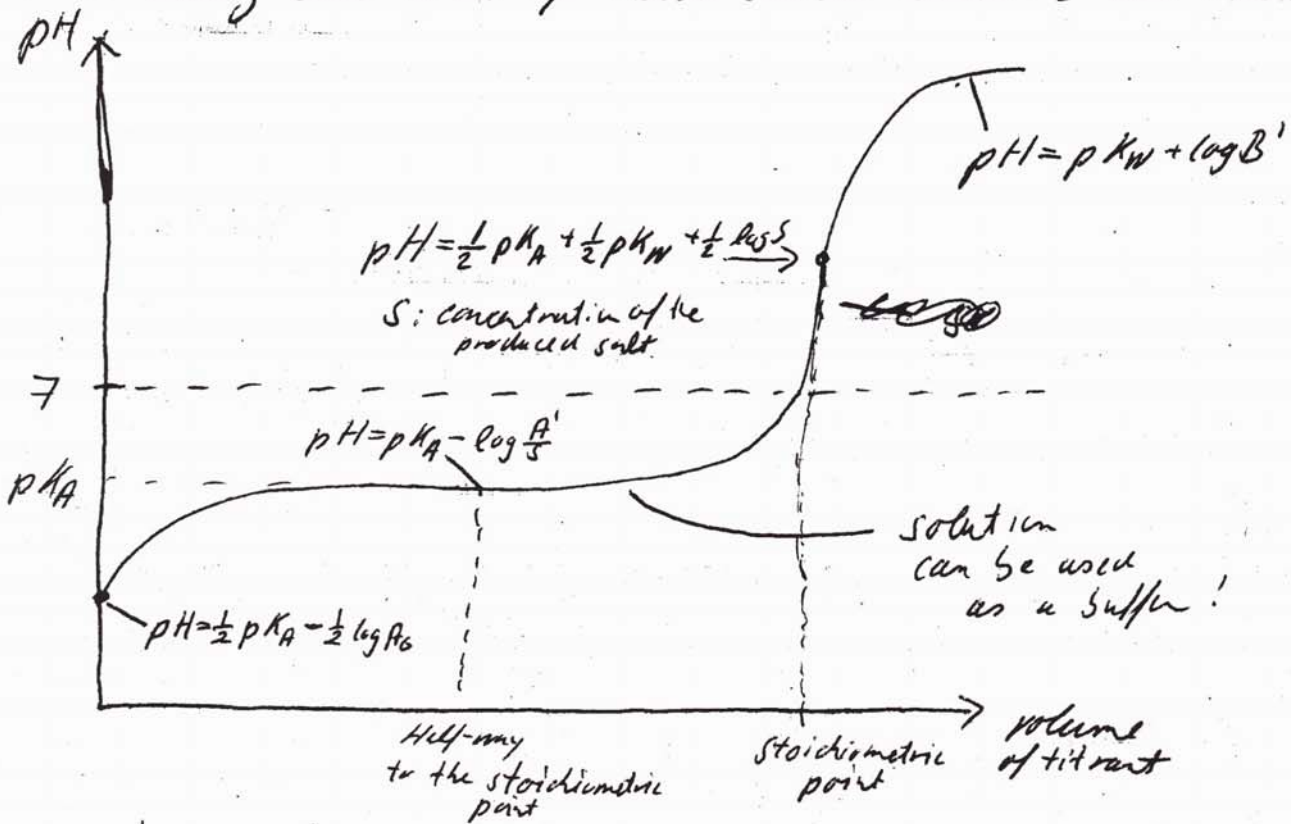 pH
pH = pK_W + log B'
pH = ½ pK_A + ½ pK_W + ½ log S
S: concentration of the
produced salt
7
pH = pK_A − log A'/S
pK_A
solution
can be used
as a buffer!
pH = ½ pK_A − ½ log A₀
Half-way
to the stoichiometric
point
stoichiometric
point
volume
of titrant